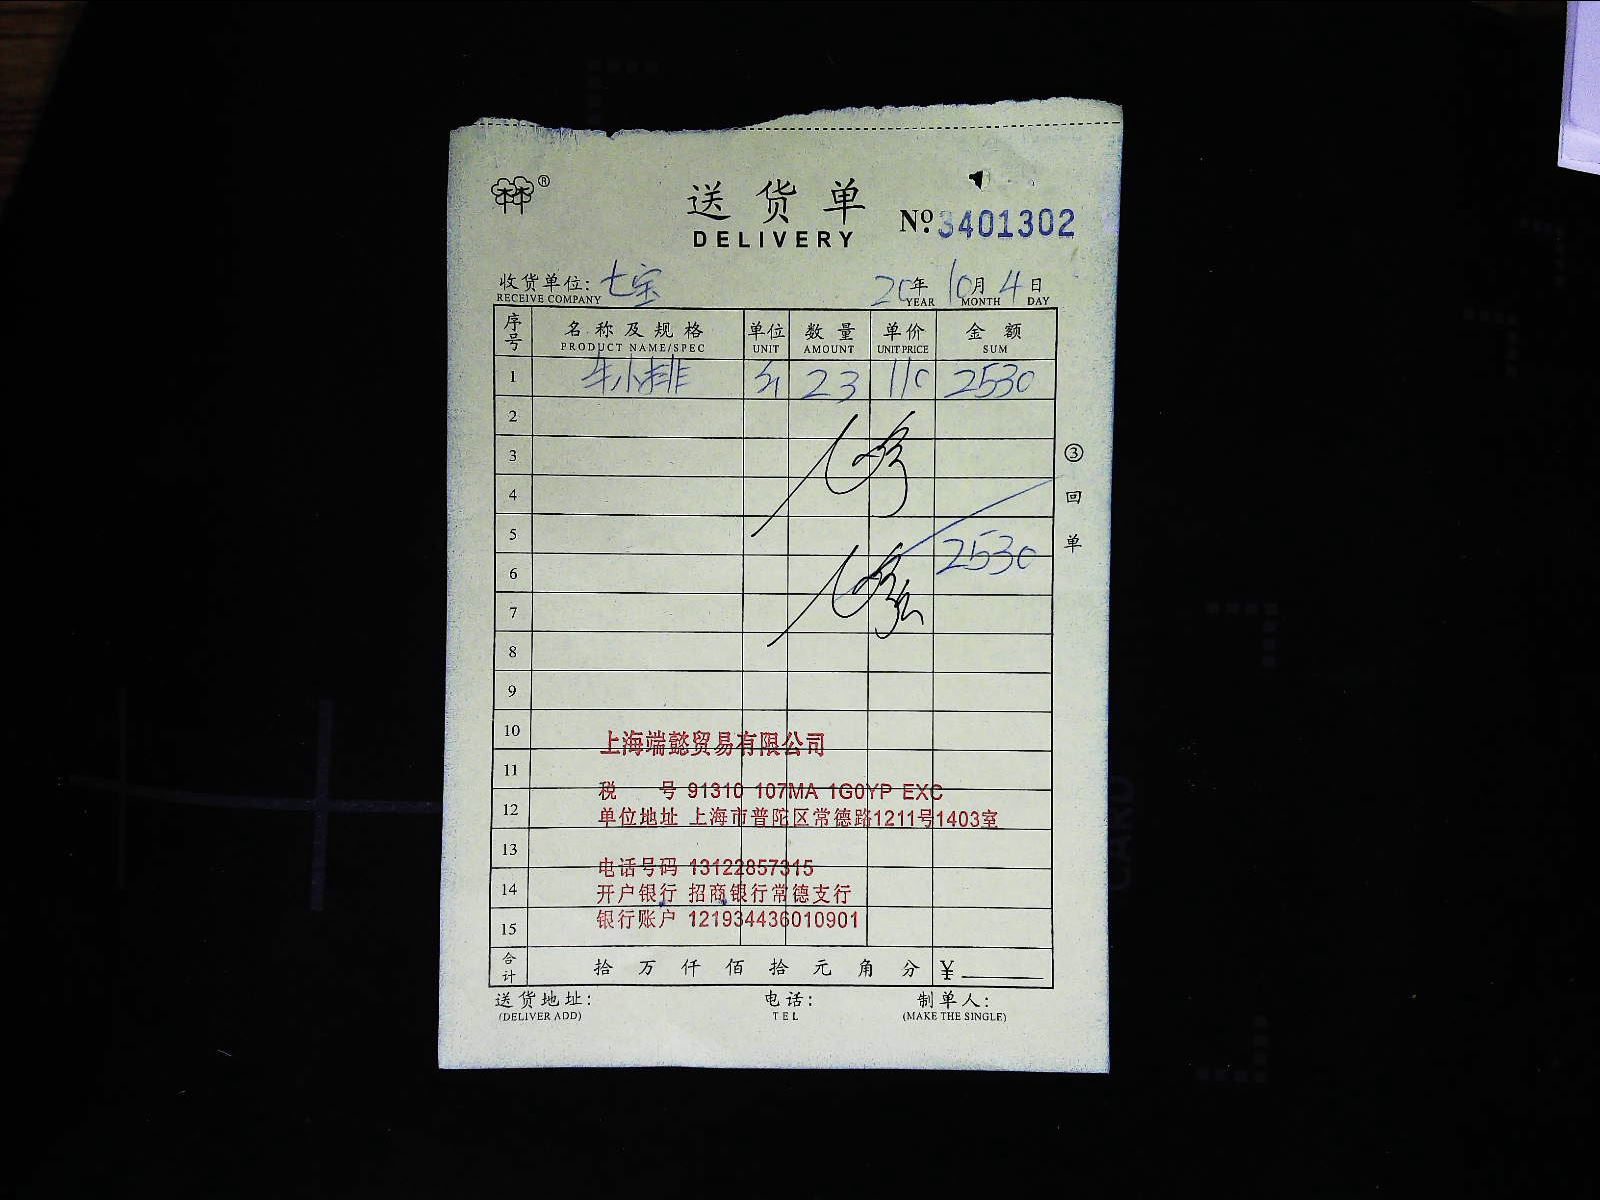 林林®
送货单
DELIVERY
№:3401302
收货单位: 七宝 20年 10月 4日
RECEIVE COMPANY YEAR MONTH DAY
序号 名称及规格 单位 数量 单价 金额
PRODUCT NAME/SPEC UNIT AMOUNT UNIT PRICE SUM
1 牛小排 23 110 2530
2
3
4
5
2530
6
7
8
9
10
上海端懿贸易有限公司
11
税 号 91310 107MA 1G0YP EXC
12 单位地址 上海市普陀区常德路1211号1403室
13
电话号码 13122857315
14 开户银行 招商银行常德支行
15 银行账户 121934436010901
合计 拾 万 仟 佰 拾 元 角 分 ¥
送货地址: 电话: 制单人:
(DELIVER ADD) TEL (MAKE THE SINGLE)
③回单